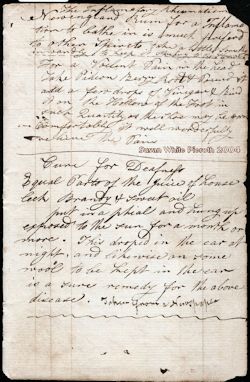 The Inflamation Rheumatism
Newengland Rum for a Inflama
tion to bathe in is much prefered
to other Spirits take a little
For a Violent Pain in the head
Take Poison berry & Bruise it
add a few drops of Vinegar & bind
it on the Hollow of the Foot in
such Quantity as the skin may be warm
Comfortable it will wonderfully
relieve the Pain
Sarah White Pieroth 2004
Cure for Deafness
Equal Parts of the juice of house
leek Brandy & Sweet oil
put in a phial and hung up
exposed to the sun for a month or
more. This droped in the ear at
night, and likewise on some
wool to be kept in the ear
is a sure remedy for the above
disease.